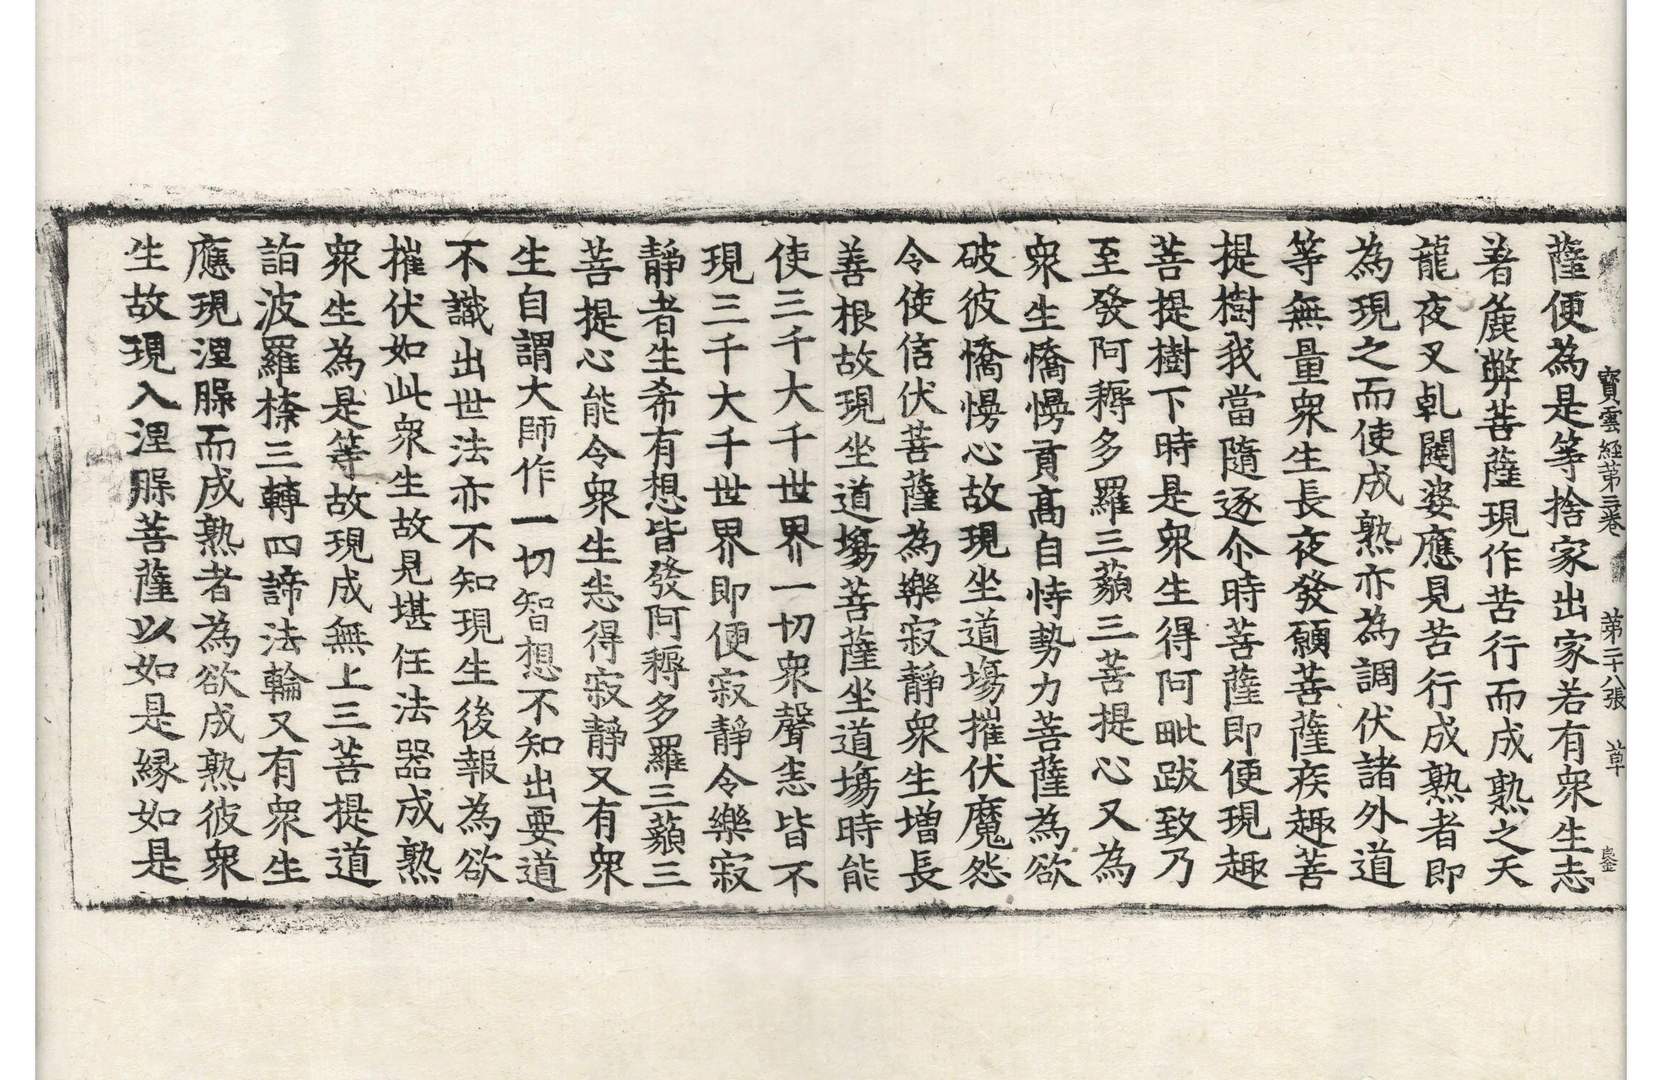 寶雲經第三卷　第二十八張　草
薩便為是等捨家出家若有衆生志
著麁弊菩薩現作苦行而成熟之天
龍夜叉乹闥婆應見苦行成熟者即
為現之而使成熟亦為調伏諸外道
等無量衆生長夜發願菩薩疾趣菩
提樹我當隨逐尒時菩薩即便現趣
菩提樹下時是衆生得阿毗跋致乃
至發阿耨多羅三藐三菩提心又為
衆生憍慢貢高自恃勢力菩薩為欲
破彼憍慢心故現坐道場摧伏魔怨
令使信伏菩薩為樂寂靜衆生增長
善根故現坐道場菩薩坐道場時能
使三千大千世界一切衆聲恙皆不
現三千大千世界即便寂靜令樂寂
靜者生希有想皆發阿耨多羅三藐三
菩提心能令衆生恙得寂靜又有衆
生自謂大師作一切智想不知出要道
不識出世法亦不知現生後報為欲
摧伏如此衆生故見堪任法器成熟
衆生為是等故現成無上三菩提道
詣波羅㮈三轉四諦法輪又有衆生
應現涅槃而成熟者為欲成熟彼衆
生故現入涅槃菩薩以如是緣如是